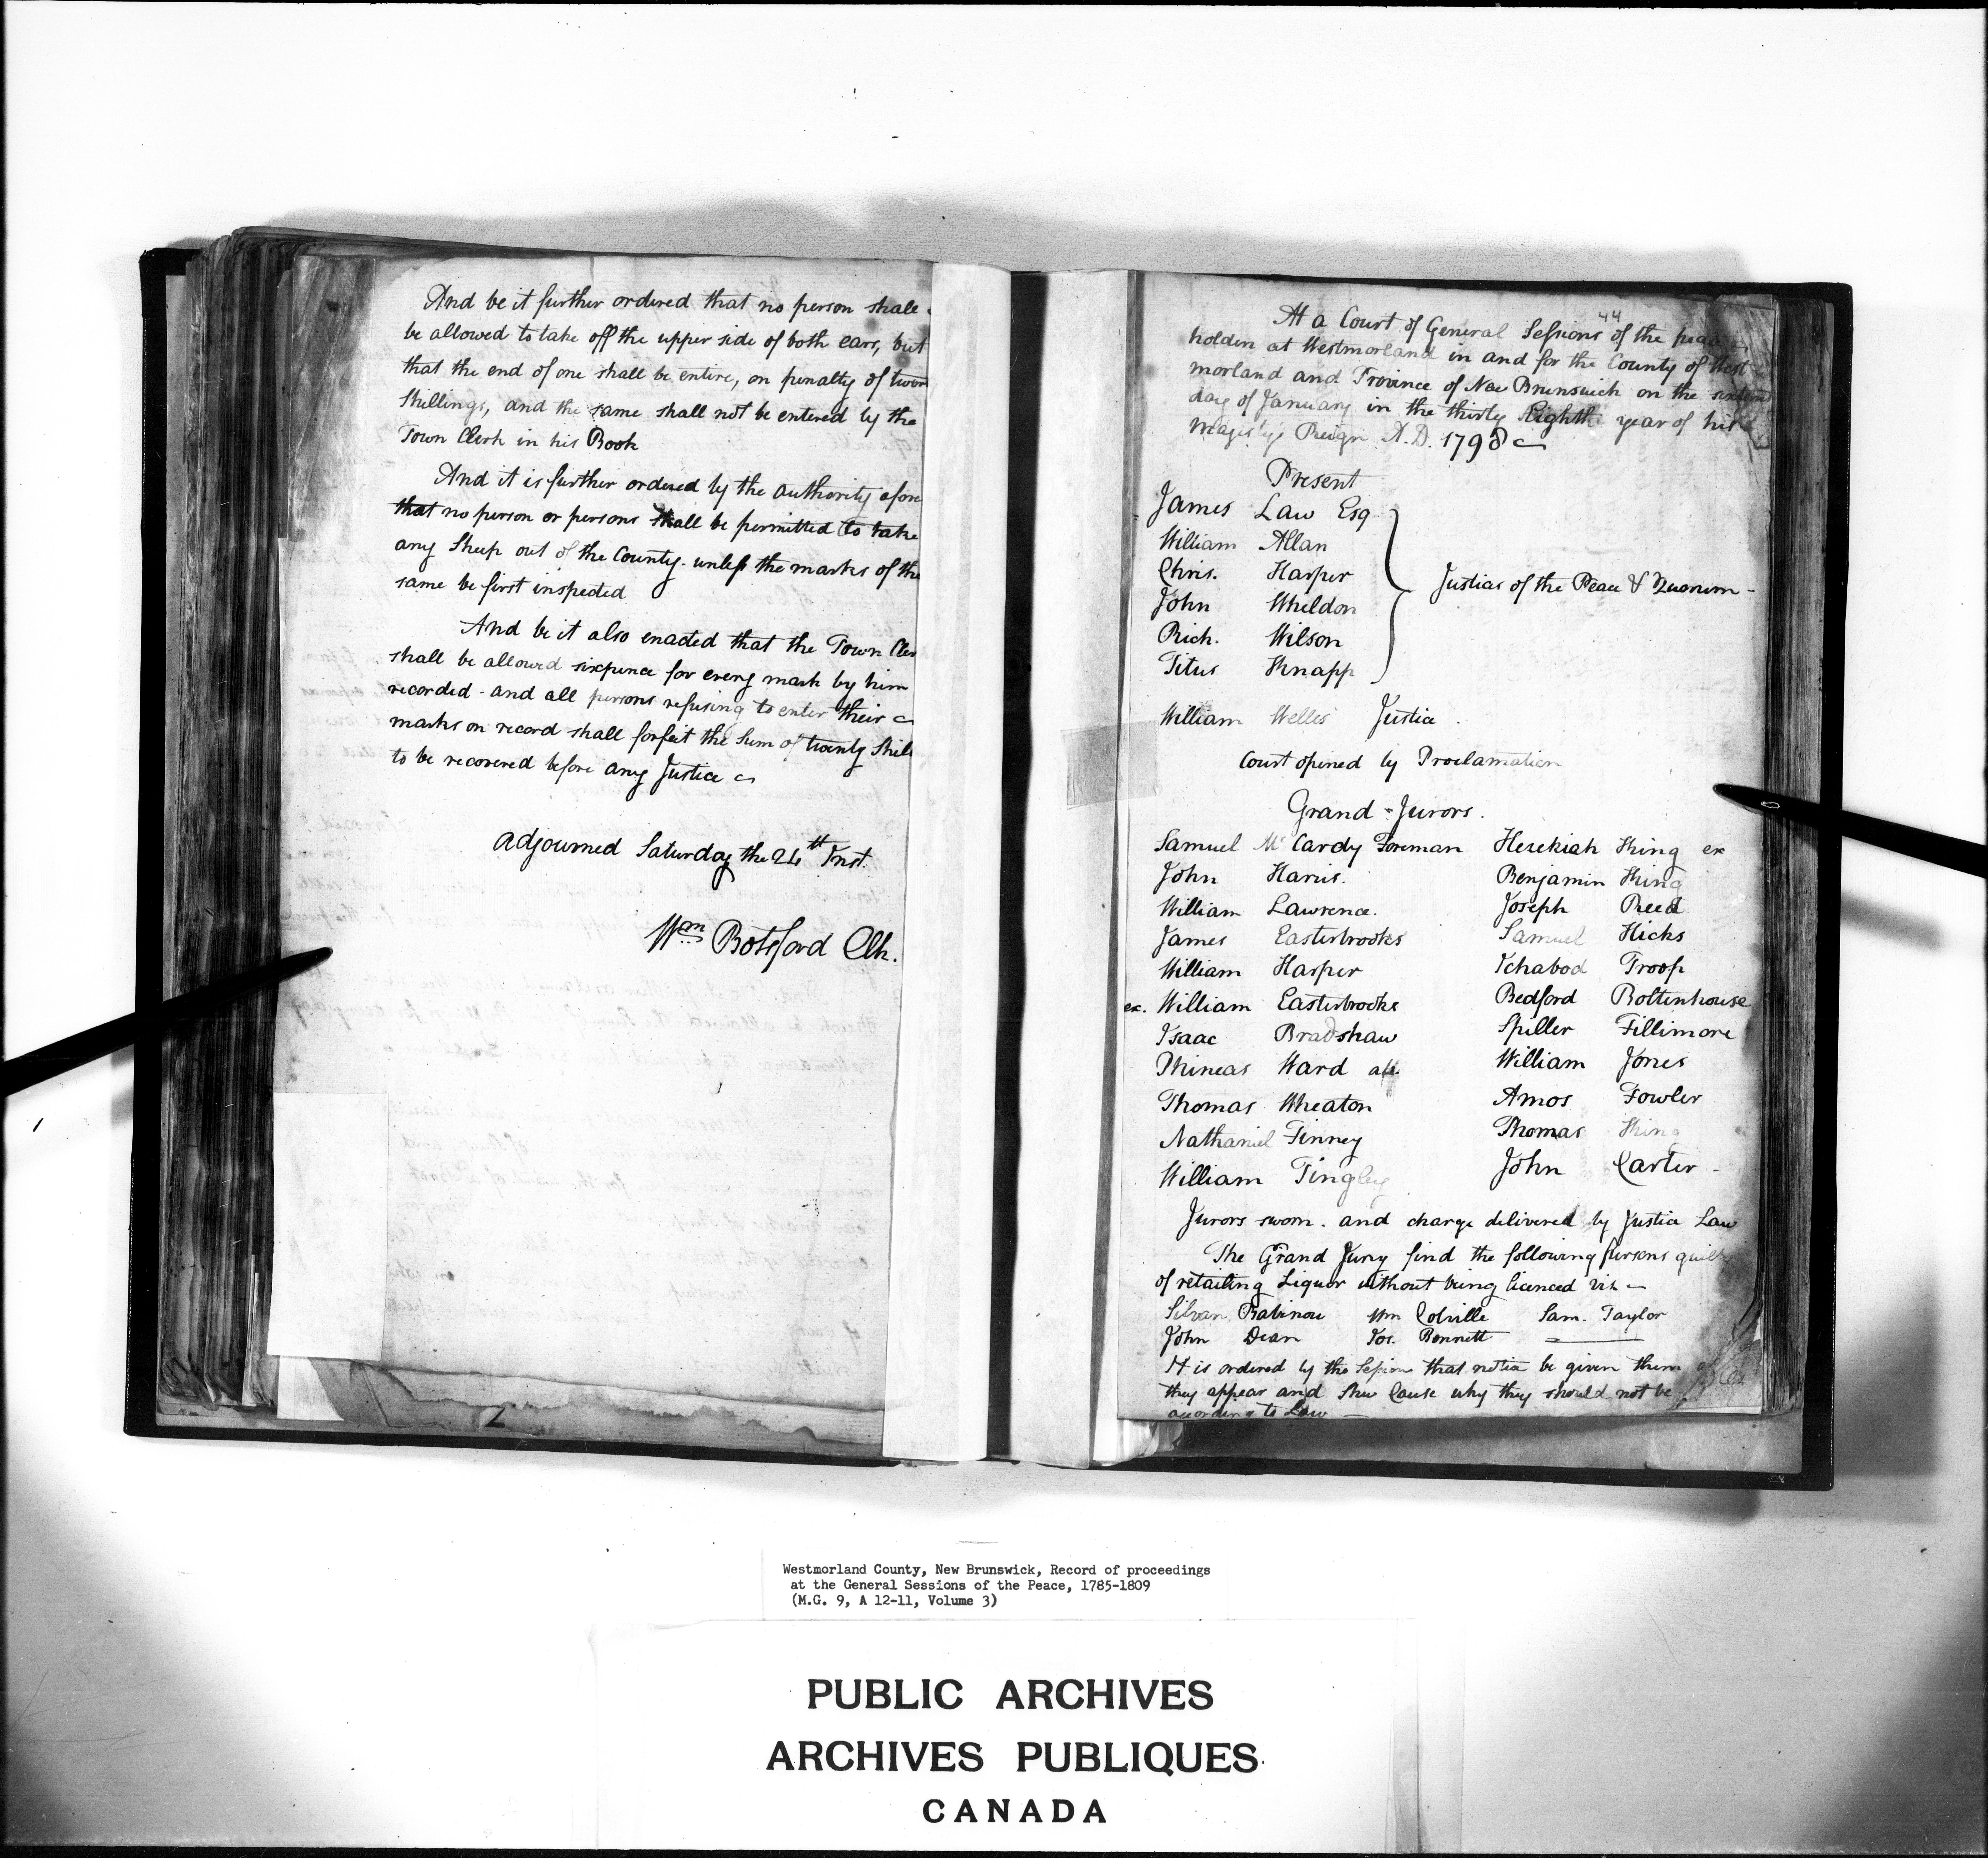 And be it further ordered that no person shall
be allowed to take off the upper side of both ears, but
that the end of one shall be entire, on penalty of
Shillings, and the same shall not be entered by the
Town Clerk in his Book
And it is further ordered by the authority afore
that no person or persons shall be permitted to take
any Sheep out of the County. unless the marks of the
same be first inspected
And be it also enacted that the Town Cler
shall be allowed sixpence for every mark by him
recorded - and all persons refusing to enter their
marks on record shall forfeit the Sum of twenty Shill
to be recovered before any Justice
Adjourned Saturday the 24th Inst.
Wm Botsford Clk.
44
At a Court of General Sessions of the peace
holden at Westmorland in and for the County of West
morland and Province of New Brunswick on the
day of January in the thirty Eighth year of his
Majesty's Reign A.D. 1798
Present
James Law Esq
William Allan
Chris. Harper
John Wheldon
Rich. Wilson
Titus Knapp
Justices of the Peace & Quorum -
William Welles Justice.
Court opened by Proclamation
Grand-Jurors.
Samuel McCardy Foreman Hezekiah King ex
John Harris. Benjamin King
William Lawrence. Joseph Reed
James Easterbrooks Samuel Hicks
William Harper Ichabod Troop
ex. William Easterbrooks Bedford Boltenhouse
Isaac Bradshaw Spiller Fillimore
Phineas Ward ab. William Jones
Thomas Wheaton Amos Fowler
Nathaniel Finney Thomas King
William Tingley John Carter -
Jurors sworn. and charge delivered by Justice Law
The Grand Jury find the following persons guilty
of retailing Liquor without being licenced viz -
Silvan Rabinou Wm Colville Sam. Taylor
John Dean Jos. Bennett
It is ordered by the Session that notice be given them
they appear and Shew Cause why they should not be
according to Law -
Westmorland County, New Brunswick, Record of proceedings
at the General Sessions of the Peace, 1785-1809
(M.G. 9, A 12-11, Volume 3)
PUBLIC ARCHIVES
ARCHIVES PUBLIQUES
CANADA